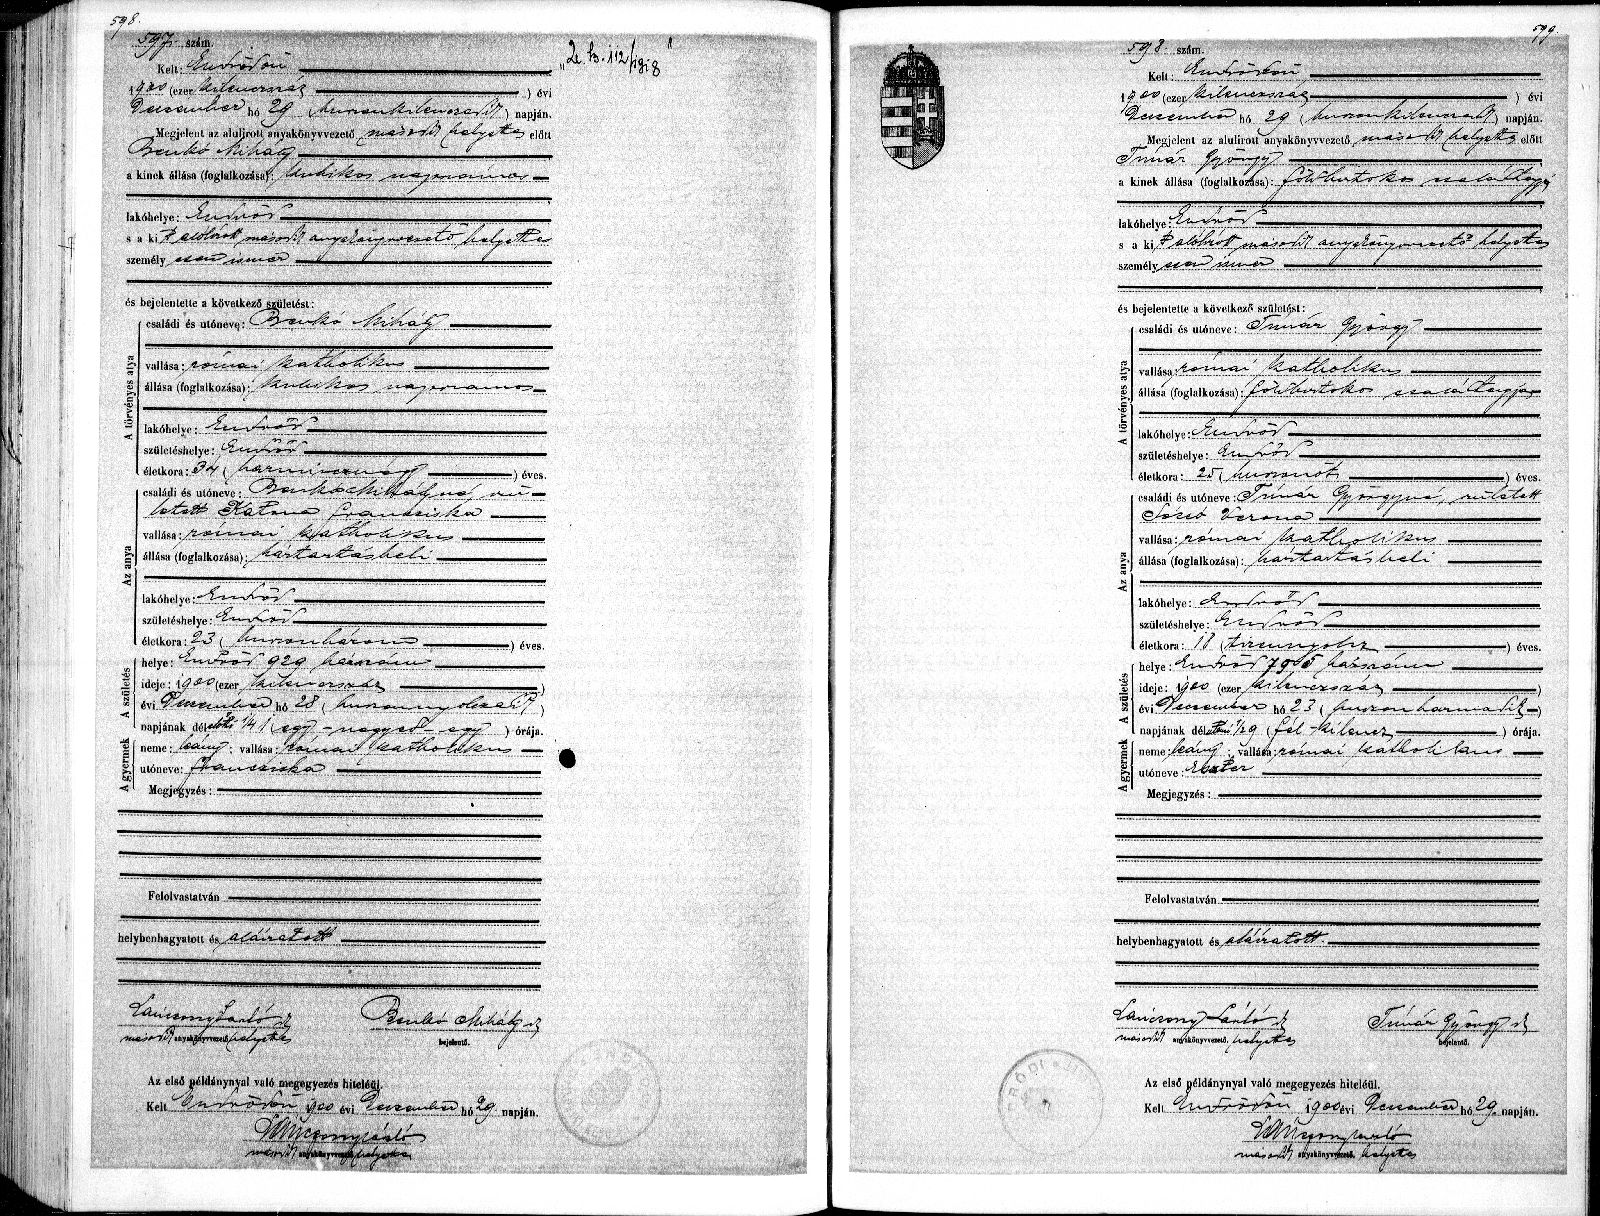 598.
597. szám.
Kelt: Endrődön
1900 (ezer kilenczszáz ) évi
December hó 29 (huszonkilenczedik) napján.
Megjelent az alulirott anyakönyvvezető második helyettes előtt
Benkó Mihály
a kinek állása (foglalkozása): kubikos napszámos
lakóhelye: Endrőd
s a ki t alólirott második anyakönyvvezető helyettes
személyesen ismer
és bejelentette a következő születést:
A törvényes atya
családi és utóneve: Benkó Mihály
vallása: római katholikus
állása (foglalkozása): kubikos napszámos
lakóhelye: Endrőd
születéshelye: Endrőd
életkora: 34 (harmincznégy ) éves.
Az anya
családi és utóneve: Benkó Mihályné, szü-
letett Katona Francziska
vallása: római katholikus
állása (foglalkozása): háztartásbeli
lakóhelye: Endrőd
születéshelye: Endrőd
életkora: 23 (huszonhárom ) éves.
A születés
helye: Endrőd 929 házszám
ideje: 1900 (ezer kilenczszáz )
évi December hó 28 (huszonnyolczadik )
napjának délelőtti 1/4 1 (egy-negyed-egy ) órája.
A gyermek
neme: leány; vallása: római katholikus
utóneve: Francziska
Megjegyzés:
Felolvastatván
helybenhagyatott és aláiratott
Lanczsony László sk Benkó Mihály sk
második anyakönyvvezető helyettes bejelentő.
Az első példánynyal való megegyezés hiteléül.
Kelt Endrődön 1900 évi December hó 29 napján.
második anyakönyvvezető helyettes
599.
598. szám.
Kelt: Endrődön
1900 (ezer kilenczszáz ) évi
December hó 29 (huszonkilenczedik) napján.
Megjelent az alulirott anyakönyvvezető második helyettes előtt
Timár György
a kinek állása (foglalkozása): földbirtokos családtagja
lakóhelye: Endrőd
s a ki t alólirott második anyakönyvvezető helyettes
személyesen ismer
és bejelentette a következő születést:
A törvényes atya
családi és utóneve: Timár György
vallása: római katholikus
állása (foglalkozása): földbirtokos családtagja
lakóhelye: Endrőd
születéshelye: Endrőd
életkora: 25 (huszonöt ) éves.
Az anya
családi és utóneve: Timár Györgyné, született
Verona
vallása: római katholikus
állása (foglalkozása): háztartásbeli
lakóhelye: Endrőd
születéshelye: Endrőd
életkora: 18 (tizennyolcz ) éves.
A születés
helye: Endrőd házszám
ideje: 1900 (ezer kilenczszáz )
évi December hó 23 (huszonharmadik )
napjának délutáni 1/2 9 (fél-kilencz ) órája.
A gyermek
neme: leány; vallása: római katholikus
utóneve: Eszter
Megjegyzés:
Felolvastatván
helybenhagyatott és aláiratott.
Lanczsony László sk Timár György sk
második anyakönyvvezető helyettes bejelentő.
Az első példánynyal való megegyezés hiteléül.
Kelt Endrődön 1900 évi December hó 29 napján.
második anyakönyvvezető helyettes